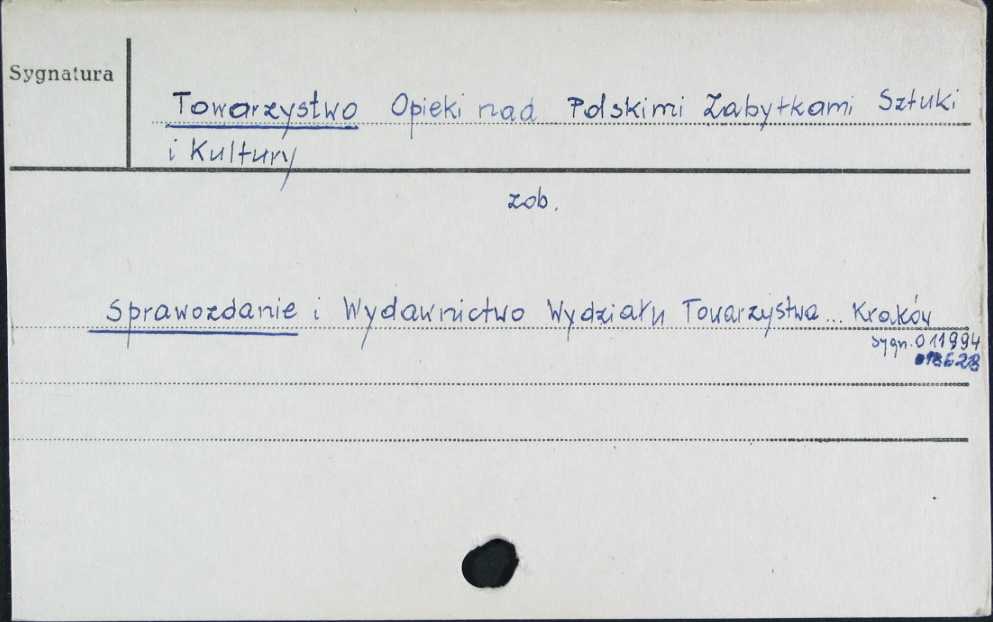 Sygnatura
Towarzystwo Opieki nad Polskimi Zabytkami Sztuki
i Kultury
zob.
Sprawozdanie i Wydawnictwo Wydziału Towarzystwa... Kraków
sygn. 011994